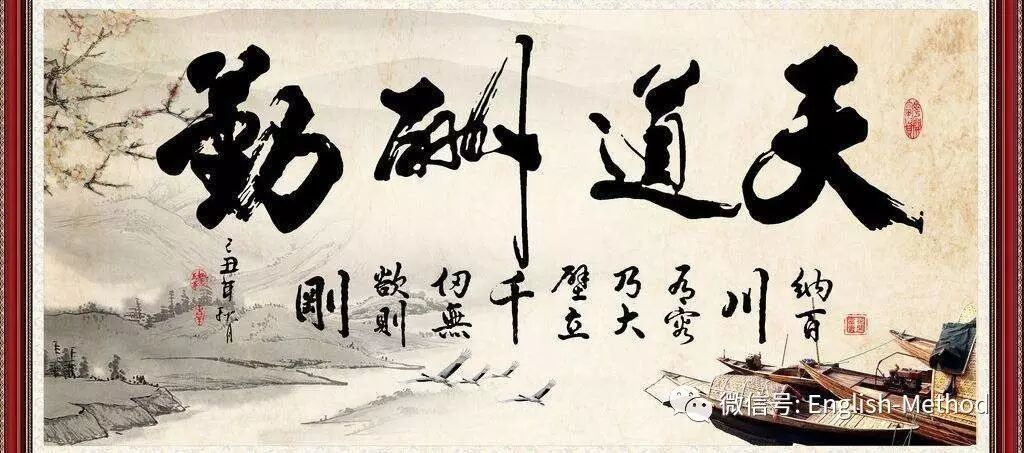 天道酬勤
納百川有容乃大壁立千仞無欲則剛
己丑年秋月
微信号: English-Method